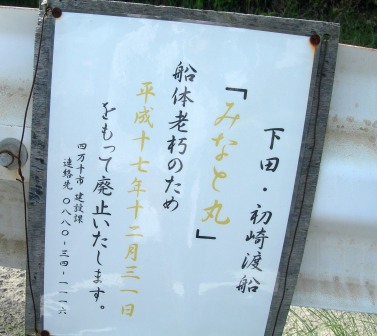 下田・初崎渡船
「みなと丸」
船体老朽のため
平成十七年十二月三一日
をもって廃止いたします。
四万十市 建設課
連絡先 〇八八〇-三四-一一一六